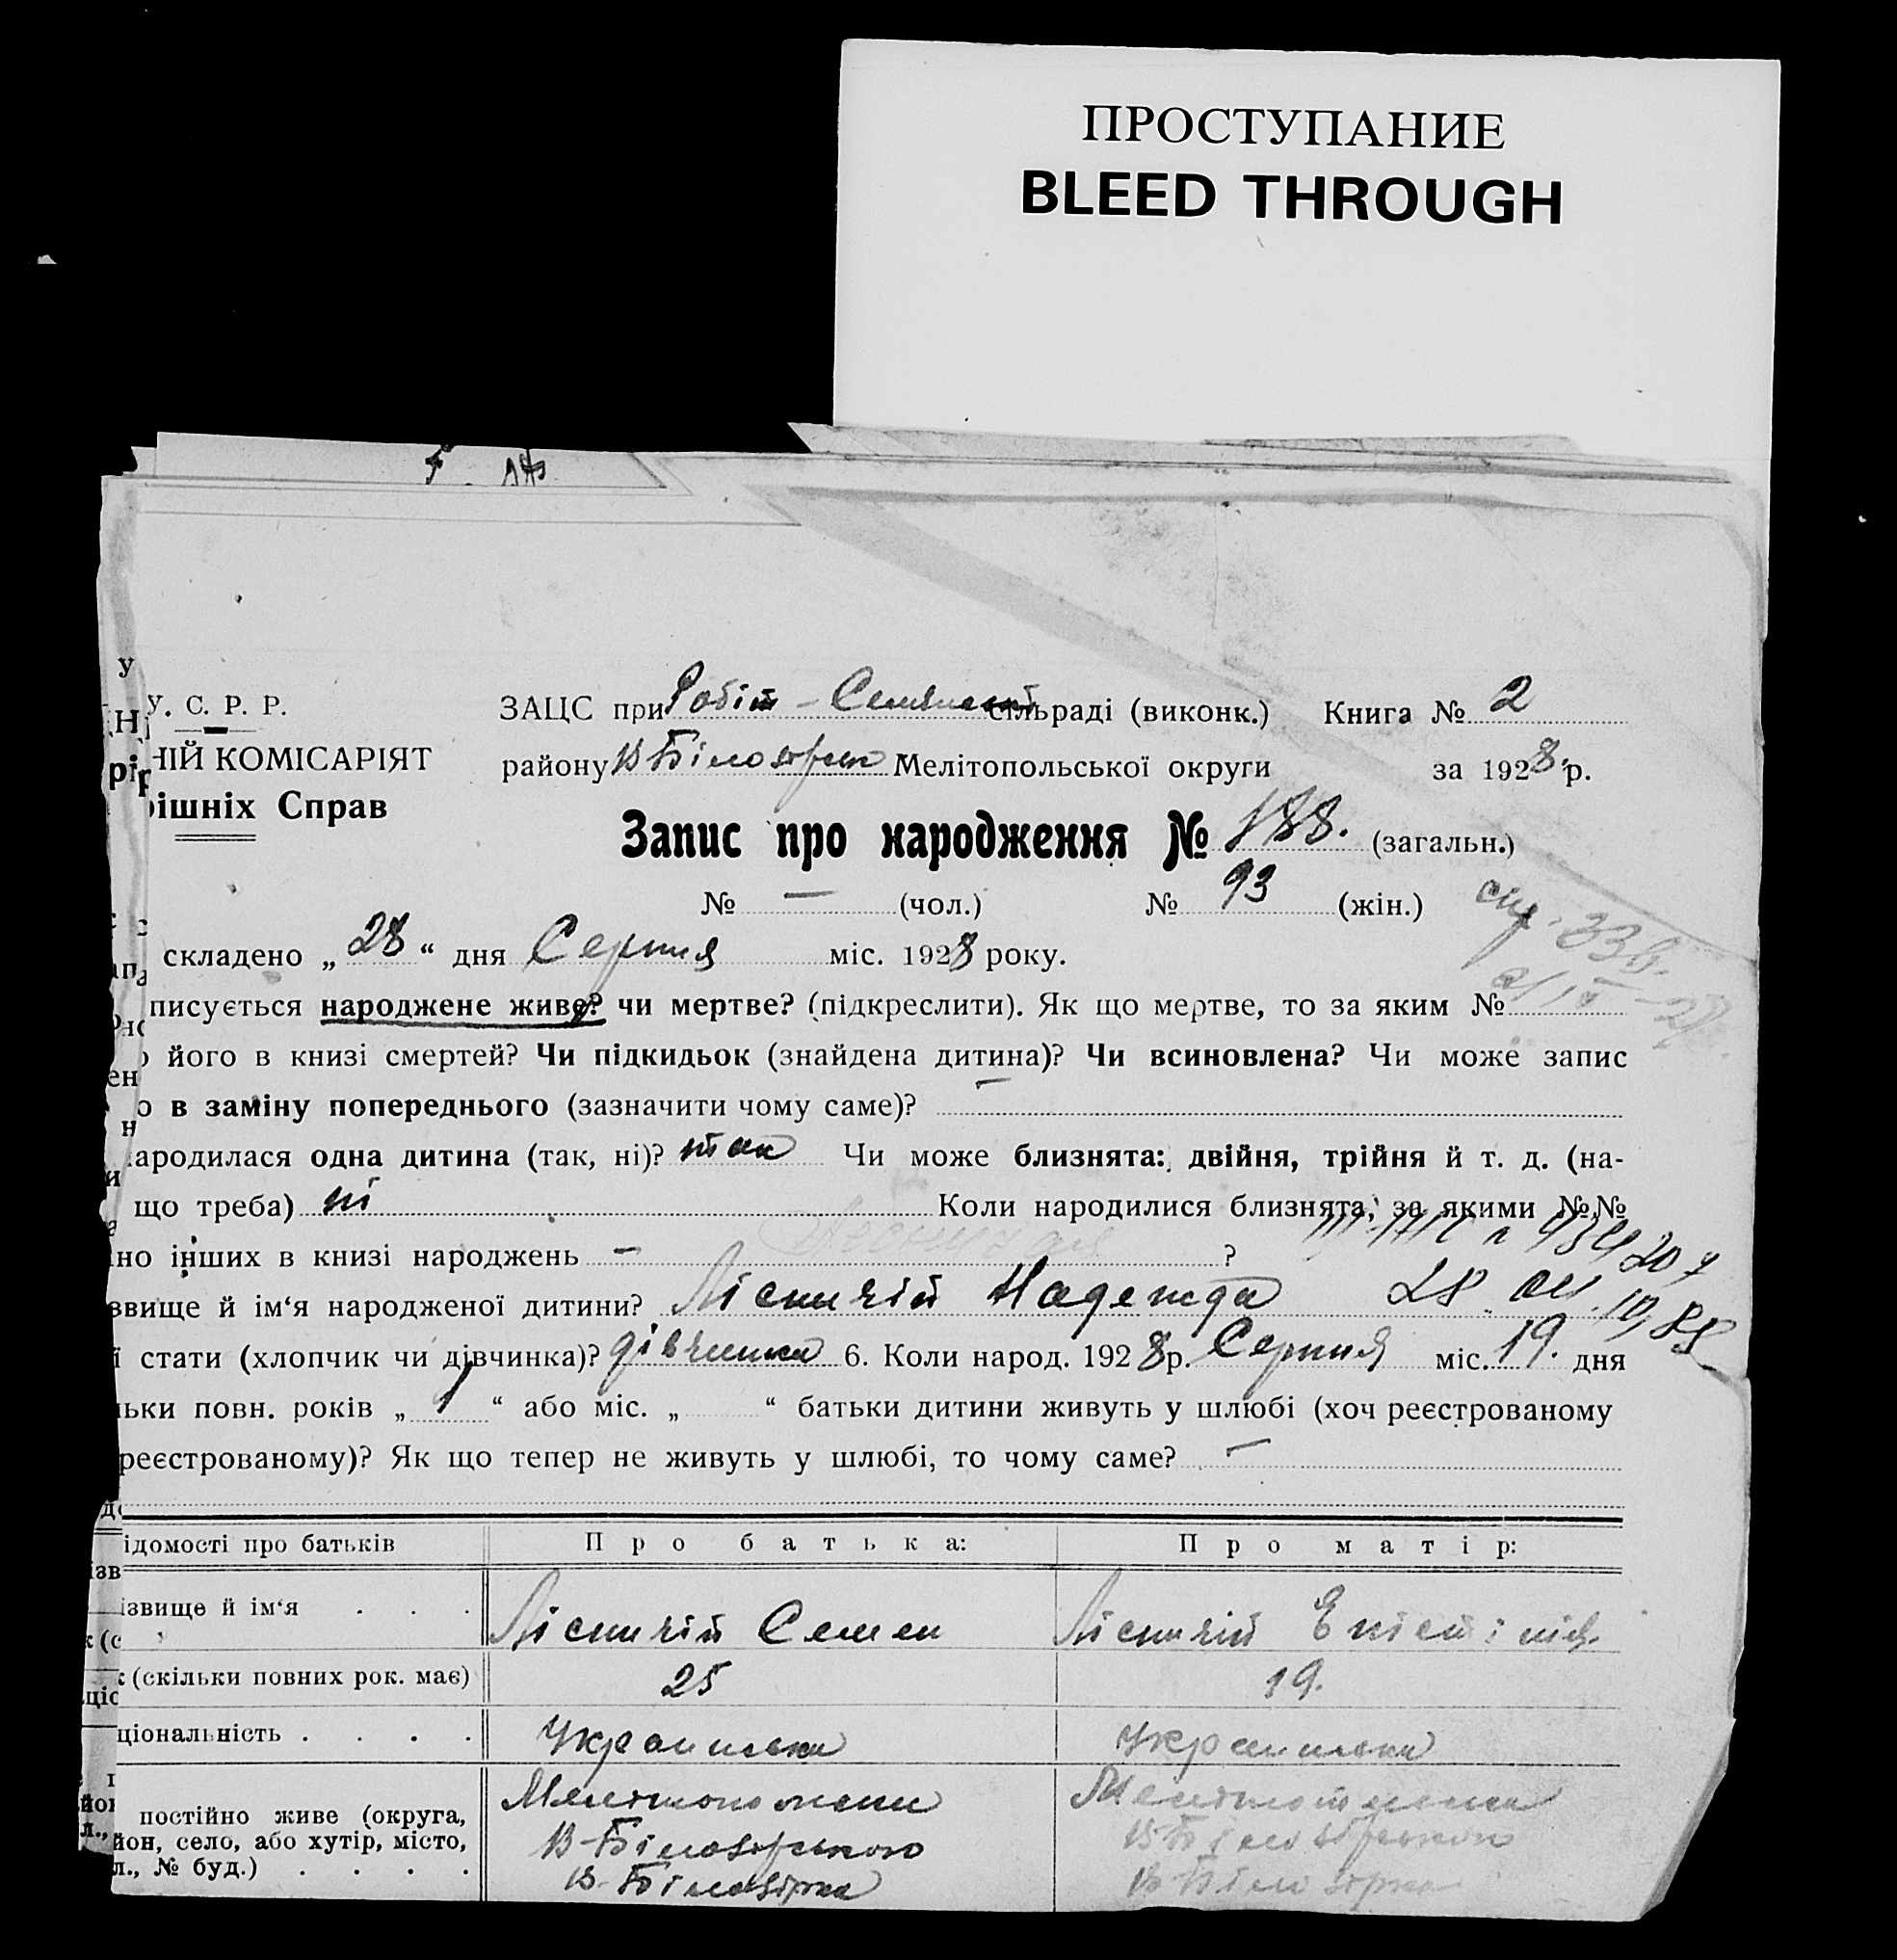 ПРОСТУПАНИЕ
BLEED THROUGH
У. С. Р. Р.
НІЙ КОМІСАРІЯТ
рішніх Справ
ЗАЦС при Робіт - Селянській сільраді (виконк.) Книга № 2
району В Білозірк Мелітопольської округи за 1928 р.
Запис про народження № 188. (загальн.)
№ — (чол.) № 93 (жін.)
складено „28“ дня Серпня міс. 1928 року.
писується народжене живе? чи мертве? (підкреслити). Як що мертве, то за яким №
його в книзі смертей? Чи підкидьок (знайдена дитина)? Чи всиновлена? Чи може запис
о в заміну попереднього (зазначити чому саме)? —
ародилася одна дитина (так, ні)? так Чи може близнята: двійня, трійня й т. д. (на-
що треба) ні Коли народилися близнята, за якими №№
но інших в книзі народжень — ?
звище й ім‘я народженої дитини? Лісничій Надежда
ї стати (хлопчик чи дівчинка)? дівчинка 6. Коли народ. 1928 р. Серпня міс. 19. дня
льки повн. років „1“ або міс. „ “ батьки дитини живуть у шлюбі (хоч реєстрованому
реєстрованому)? Як що тепер не живуть у шлюбі, то чому саме? —
ідомості про батьків Про батька: Про матір:
ізвище й ім‘я . . . Лісничій Семен Лісничій
к (скільки повних рок. має) 25 19.
ціональність . . . . Українська Українська
постійно живе (округа,
йон, село, або хутір, місто,
л., № буд.) . . . .
В-Білозірського В-Білозірського
В-Білозірка В-Білозірка